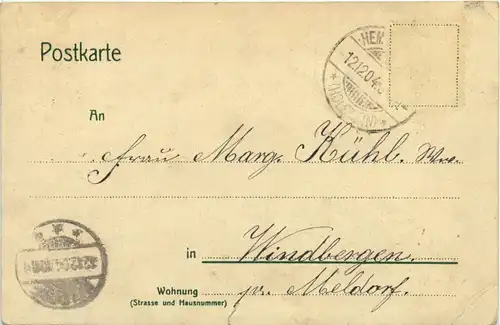 Postkarte
HEM
12/12 04
(HOLSTEIN)
An
Frau Marg. Kühl. Ww.
in Windbergen.
Wohnung pr. Meldorf.
(Strasse und Hausnummer)